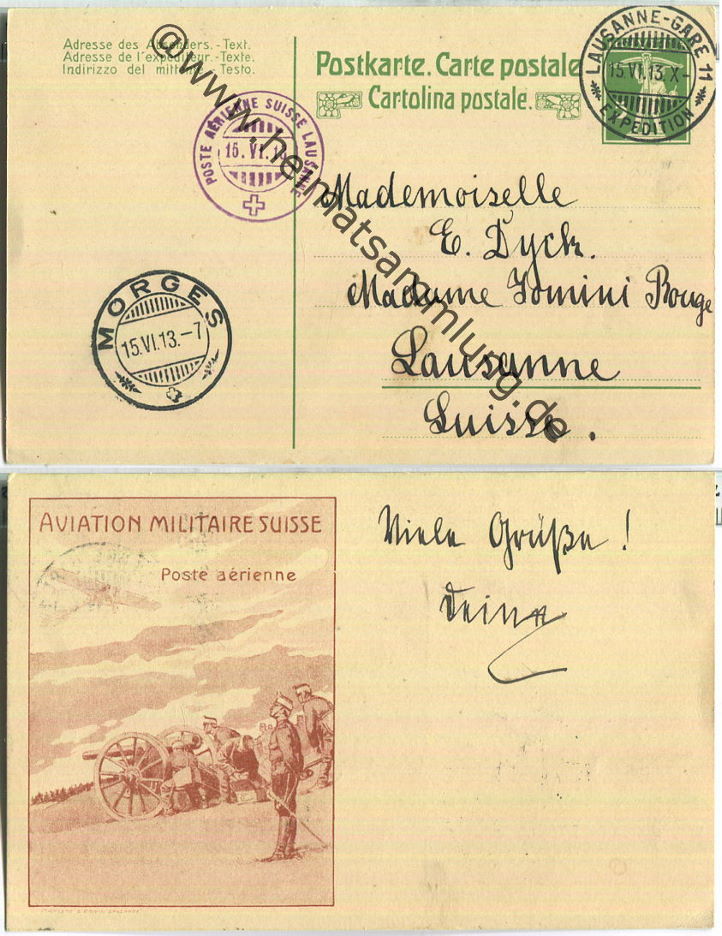 Adresse des Absenders.-Text.
Adresse de l'expéditeur.-Texte.
Indirizzo del mittente. Testo.
Postkarte. Carte postale
Cartolina postale.
LAUSANNE-GARE 11
15.VI.13.X-
EXPEDITION
POSTE AÉRIENNE SUISSE LAUSANNE
15. VI. 13
MORGES
15.VI.13.-7
Mademoiselle
E. Dyck.
Madame Jomini Rouge
Lausanne
Suisse.
@www.heimatsammlung.de
AVIATION MILITAIRE SUISSE
Poste aérienne
Viele Grüße!